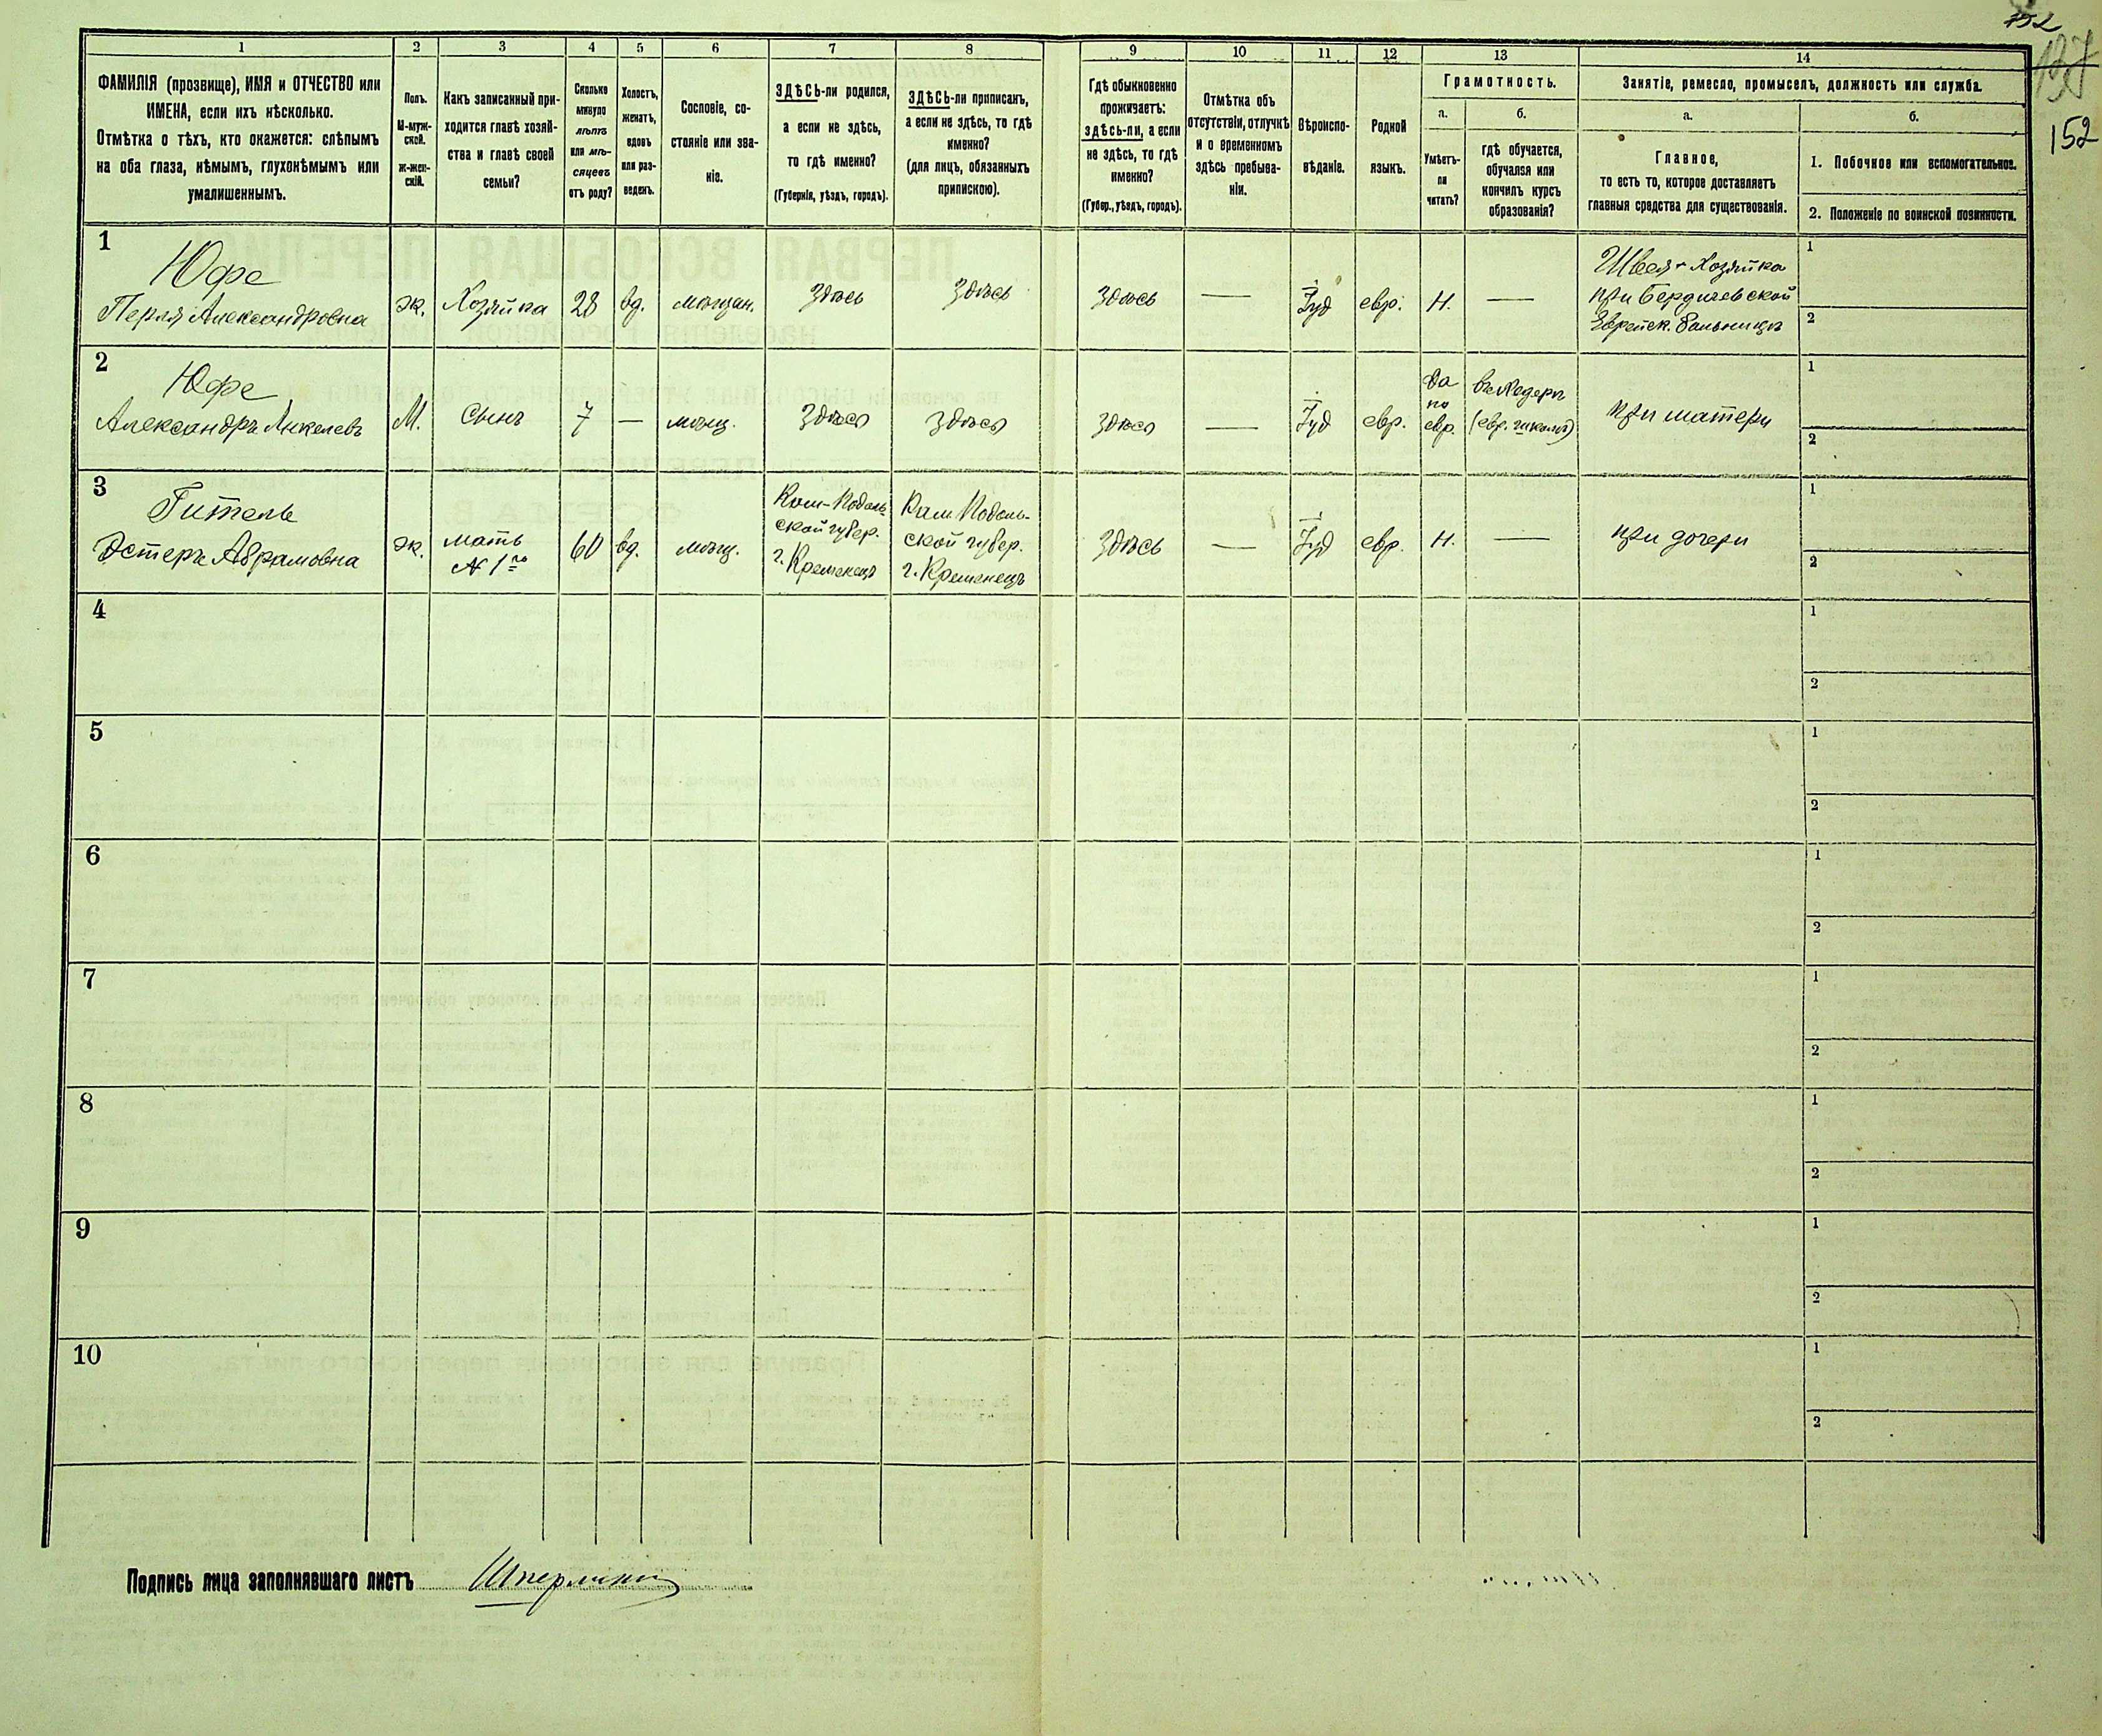 152
137
152
1
2
3
4
5
6
7
8
9
10
11
12
13
14
ФАМИЛІЯ (прозвище), ИМЯ и ОТЧЕСТВО или
ИМЕНА, если ихъ нѣсколько.
Отмѣтка о тѣхъ, кто окажется: слѣпымъ
на оба глаза, нѣмымъ, глухонѣмымъ или
умалишеннымъ.
Полъ.
М-муж-
ской.
ж-жен-
скій.
Какъ записанный при-
ходится главѣ хозяй-
ства и главѣ своей
семьи?
Сколько
минуло
лѣтъ
или мѣ-
сяцевъ
отъ роду?
Холостъ,
женатъ,
вдовъ
или раз-
веденъ.
Сословіе, со-
стояніе или зва-
ніе.
ЗДѢСЬ-ли родился,
а если не здѣсь,
то гдѣ именно?
(Губернія, уѣздъ, городъ).
ЗДѢСЬ-ли приписанъ,
а если не здѣсь, то гдѣ
именно?
(для лицъ, обязанныхъ
припискою).
Гдѣ обыкновенно
проживаетъ:
здѣсь-ли, а если
не здѣсь, то гдѣ
именно?
(Губер., уѣздъ, городъ).
Отмѣтка объ
отсутствіи, отлучкѣ
и о временномъ
здѣсь пребыва-
ніи.
Вѣроиспо-
вѣданіе.
Родной
языкъ.
Грамотность.
а.
Умѣетъ-
ли
читать?
б.
гдѣ обучается,
обучался или
кончилъ курсъ
образованія?
Занятіе, ремесло, промыселъ, должность или служба.
а.
Главное,
то есть то, которое доставляетъ
главныя средства для существованія.
б.
1. Побочное или вспомогательное.
2. Положеніе по воинской повинности.
1
Юфе
Перля Александровна
ж.
Хозяйка
28
вд.
мѣщан.
Здѣсь
Здѣсь
Здѣсь
—
Іуд
евр.
Н.
—
Швея - Хозяйка
при Бердичевской
Еврейск. больницѣ
1
2
2
Юфе
Александръ
М.
Сынъ
7
—
мѣщ.
Здѣсь
Здѣсь
Здѣсь
—
Іуд
евр.
Да
по
евр.
въ хедерѣ
(евр. школѣ)
при матери
1
2
3
Гитель
Эстеръ Абрамовна
ж.
мать
№ 1го
60
вд.
мѣщ.
Кам-Подоль-
ской губер.
г. Кременецъ
Кам Подоль-
ской губер.
г. Кременецъ
Здѣсь
—
Іуд
евр.
Н.
—
при дочери
1
2
4
1
2
5
1
2
6
1
2
7
1
2
8
1
2
9
1
2
10
1
2
Подпись лица заполнявшаго листъ